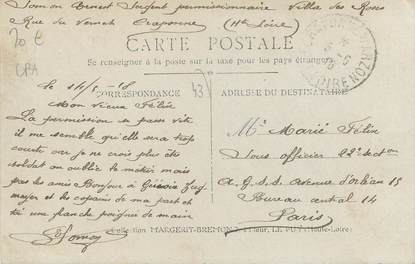 Ernest Sergent permissionnaire Villa des Roses
Rue du Craponne (Hte Loire)
CARTE POSTALE
70 €
Se renseigner à la poste sur la taxe pour les pays étrangers
CPA
CORRESPONDANCE
43
ADRESSE DU DESTINATAIRE
Le 14/5 - 18
Mon vieux Félix
La permission se passe vite
il me semble qu'elle sera trop
courte car je ne crois plus être
soldat on oublie le métier mais
pas les amis Bonjour à
et les copains de ma part et
toi une franche poignée de main
Mr Marié Félix
Sous officier 22e Section
A. G. S. S. Avenue d'orléan 15
Bureau central 14
Paris
Collection MARGERIT-BREMOND, LE PUY (Haute-Loire)